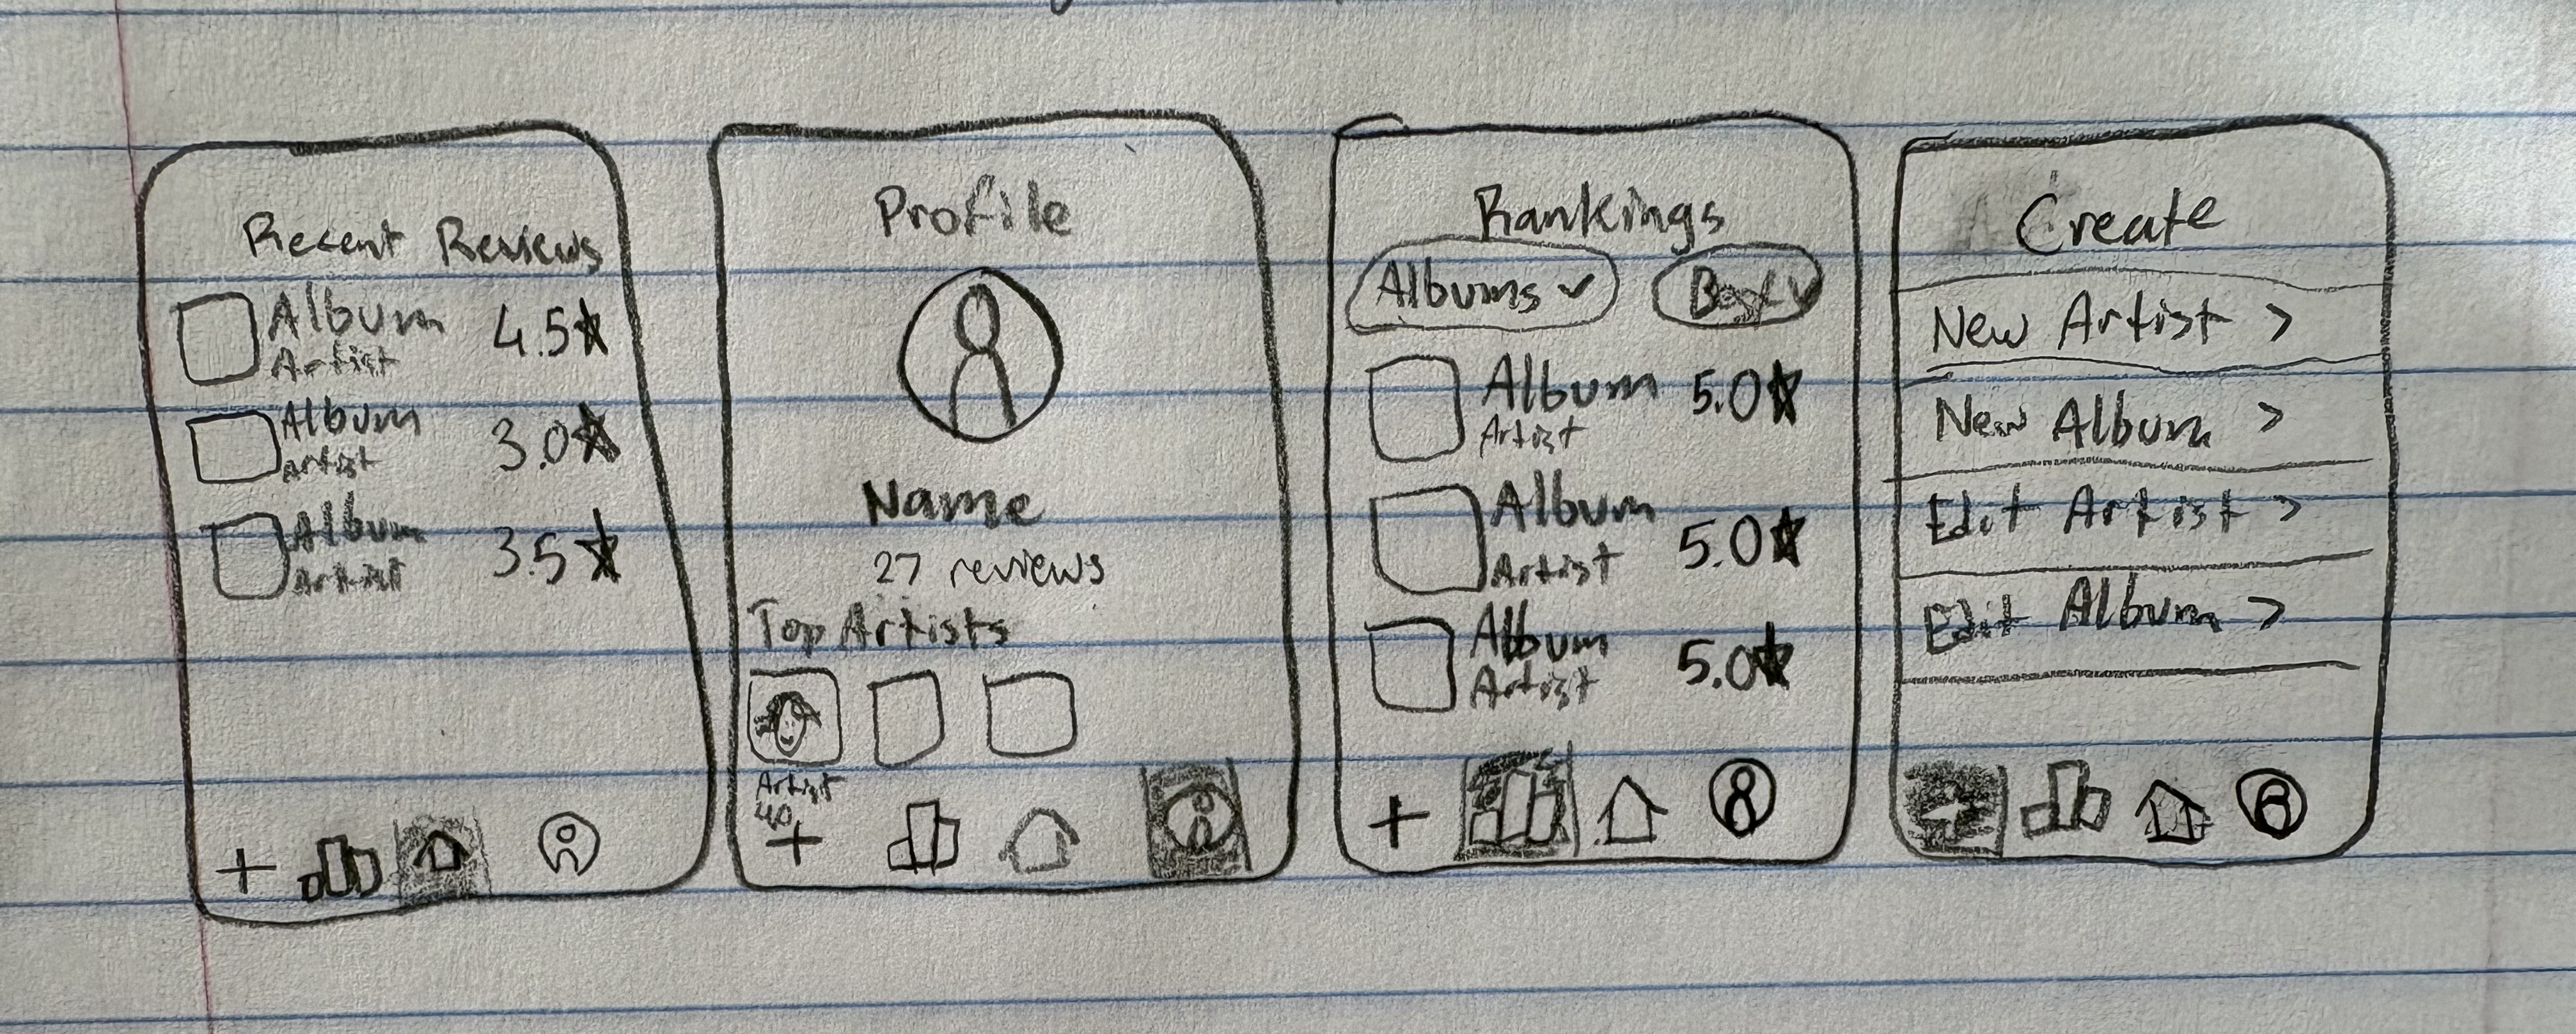 Recent Reviews
Album 4.5★
Artist
Album 3.0★
Artist
Album 3.5★
Artist
+
Profile
Name
27 reviews
Top Artists
Artist
+
Rankings
Albums ✓ Best ✓
Album 5.0★
Artist
Album 5.0★
Artist
Album 5.0★
Artist
+
Create
New Artist >
New Album >
Edit Artist >
Edit Album >